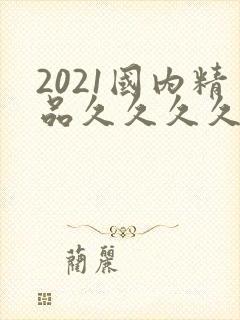 2021國內精
品久久久久
蘭麗